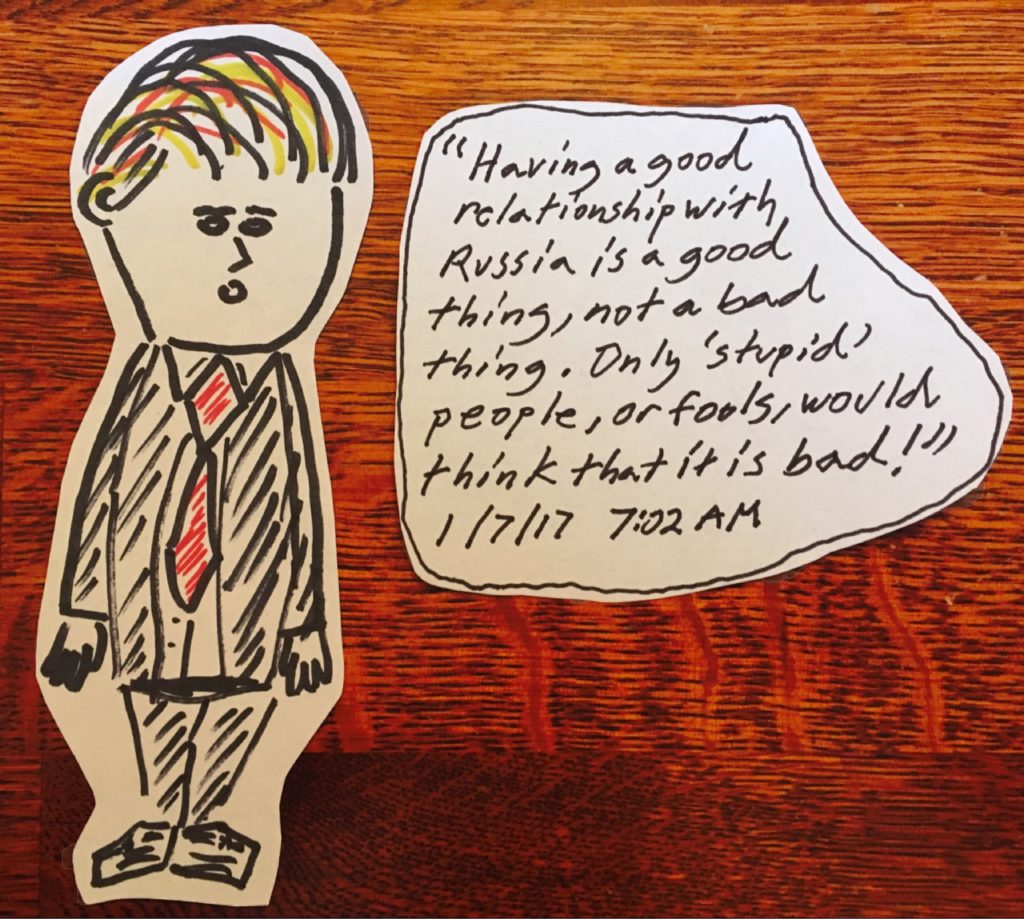 "Having a good
relationship with
Russia is a good
thing, not a bad
thing. Only 'stupid'
people, or fools, would
think that it is bad!"
1/7/17 7:02 AM